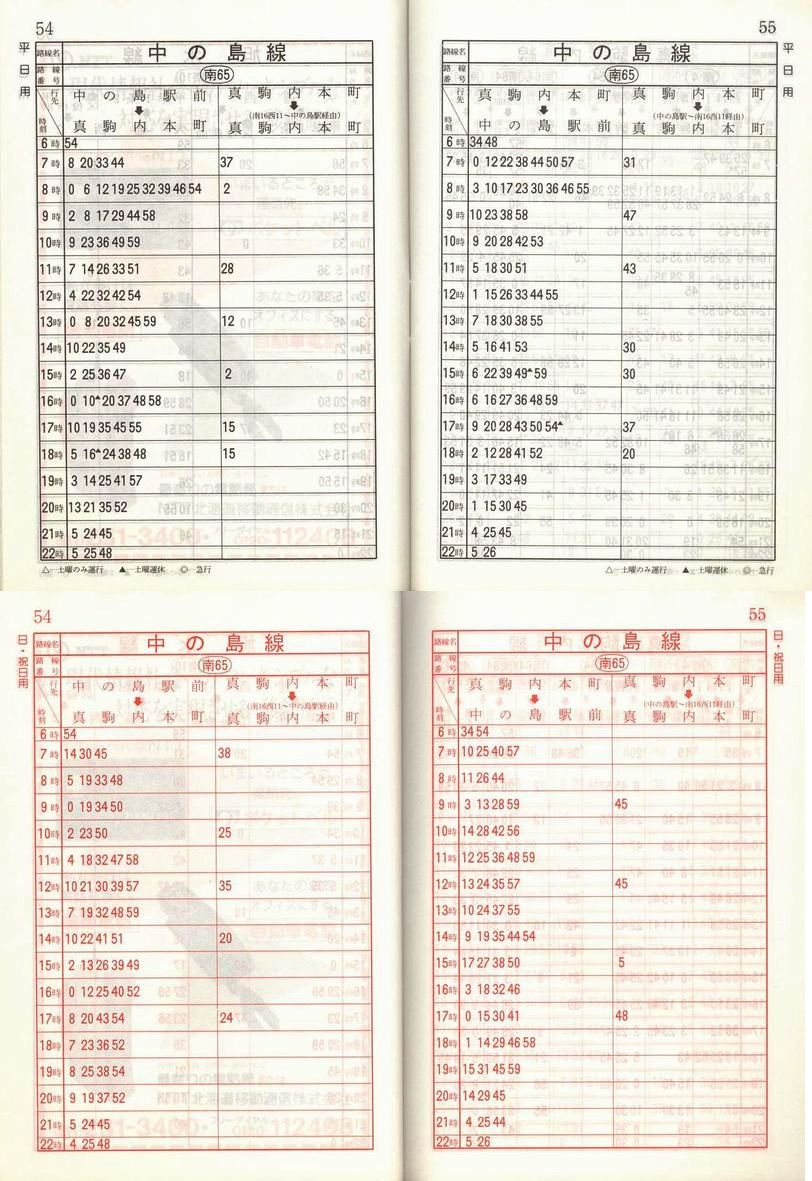 54
平日用
路線名 中の島線
路線番号 南65
行先 中の島駅前 真駒内本町
(南16西11〜中の島駅経由)
時刻 真駒内本町 真駒内本町
6時 54
7時 8 20 33 44 37
8時 0 6 12 19 25 32 39 46 54 2
9時 2 8 17 29 44 58
10時 9 23 36 49 59
11時 7 14 26 33 51 28
12時 4 22 32 42 54
13時 0 8 20 32 45 59 12
14時 10 22 35 49
15時 2 25 36 47 2
16時 0 10▲ 20 37 48 58
17時 10 19 35 45 55 15
18時 5 16▲ 24 38 48 15
19時 3 14 25 41 57
20時 13 21 35 52
21時 5 24 45
22時 5 25 48
△—土曜のみ運行 ▲—土曜運休 ◎—急行
55
平日用
路線名 中の島線
路線番号 南65
行先 真駒内本町 真駒内本町
(中の島駅〜南16西11経由)
時刻 中の島駅前 真駒内本町
6時 34 48
7時 0 12 22 38 44 50 57 31
8時 3 10 17 23 30 36 46 55
9時 10 23 38 58 47
10時 9 20 28 42 53
11時 5 18 30 51 43
12時 1 15 26 33 44 55
13時 7 18 30 38 55
14時 5 16 41 53 30
15時 6 22 39 49▲ 59 30
16時 6 16 27 36 48 59
17時 9 20 28 43 50 54▲ 37
18時 2 12 28 41 52 20
19時 3 17 33 49
20時 1 15 30 45
21時 4 25 45
22時 5 26
△—土曜のみ運行 ▲—土曜運休 ◎—急行
54
日・祝日用
路線名 中の島線
路線番号 南65
行先 中の島駅前 真駒内本町
(南16西11〜中の島駅経由)
時刻 真駒内本町 真駒内本町
6時 54
7時 14 30 45 38
8時 5 19 33 48
9時 0 19 34 50
10時 2 23 50 25
11時 4 18 32 47 58
12時 10 21 30 39 57 35
13時 7 19 32 48 59
14時 10 22 41 51 20
15時 2 13 26 39 49
16時 0 12 25 40 52
17時 8 20 43 54 24
18時 7 23 36 52
19時 8 25 38 54
20時 9 19 37 52
21時 5 24 45
22時 4 25 48
55
日・祝日用
路線名 中の島線
路線番号 南65
行先 真駒内本町 真駒内本町
(中の島駅〜南16西11経由)
時刻 中の島駅前 真駒内本町
6時 34 54
7時 10 25 40 57
8時 11 26 44
9時 3 13 28 59 45
10時 14 28 42 56
11時 12 25 36 48 59
12時 13 24 35 57 45
13時 10 24 37 55
14時 9 19 35 44 54
15時 17 27 38 50 5
16時 3 18 32 46
17時 0 15 30 41 48
18時 1 14 29 46 58
19時 15 31 45 59
20時 14 29 45
21時 4 25 44
22時 5 26